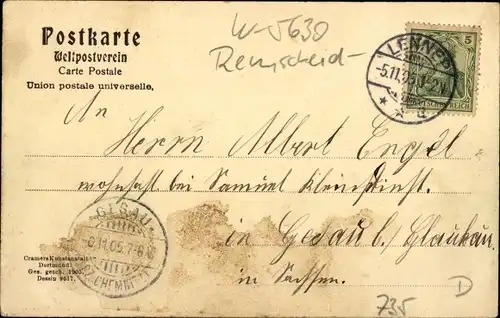 Postkarte
Weltpostverein
Carte Postale
Union postale universelle.
W-5630
Remscheid-
LENNEP
-5.11.05.1-2N.
* * d
5
DEUTSCHES REICH
An
Herrn Albert Engel
wohnhaft bei Samuel Kleindienst.
in Gesau b./Glauchau
in Sachsen.
GESAU
6.11.05.7-8
Cramers Kunstanstalt
Dortmund
Ges. gesch. 1905
Dessin 9617.
735
D